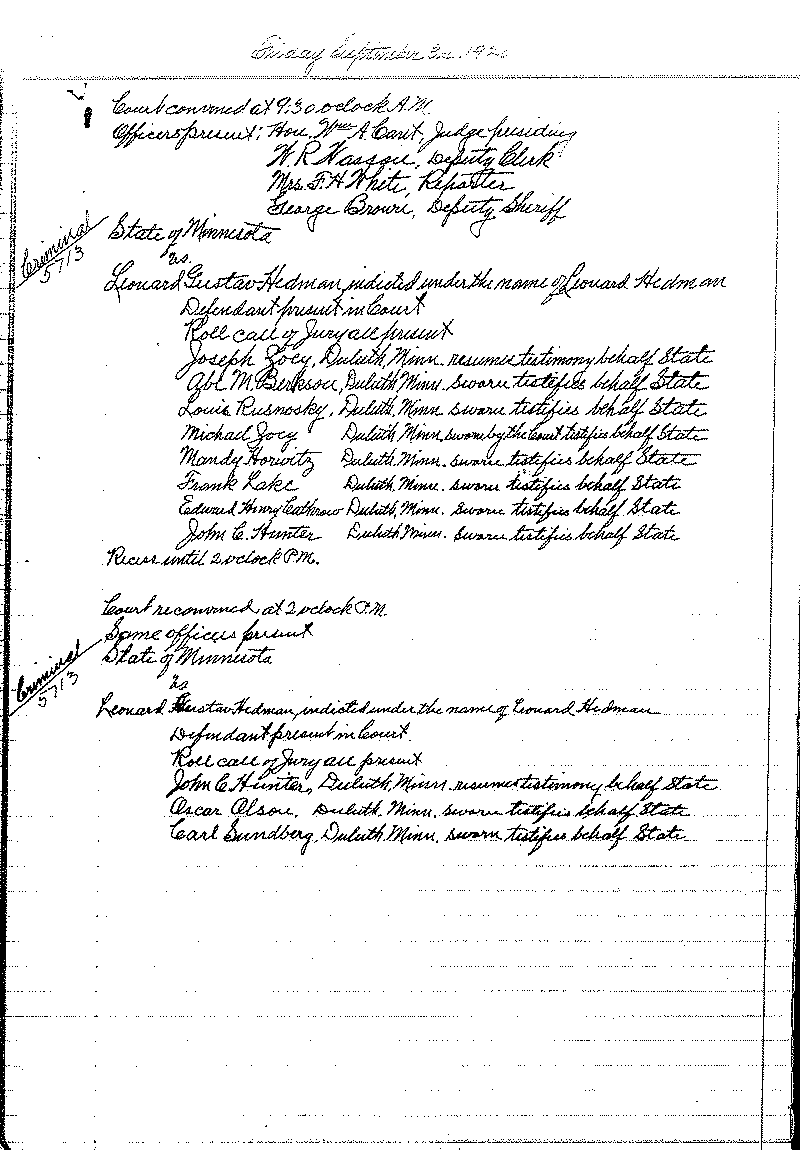 Friday September 3d, 192
Court convened at 9:30 oclock A.M.
Officers present; Hon. Wm A. Cant, Judge presiding
W. R. Wasson, Deputy Clerk
Mrs. F. H. White, Reporter
George Brown, Deputy Sheriff
Criminal
5713
State of Minnesota
vs.
Leonard Gustav Hedman, indicted under the name of Leonard Hedman
Defendant present in Court
Roll call of Jury all present
Joseph Zoey, Duluth, Minn. resumes testimony behalf State
Abe M. Berkson, Duluth, Minn. sworn testifies behalf State
Louis Rusnosky, Duluth, Minn. sworn testifies behalf State
Michael Zoey Duluth Minn. sworn by the Court testifies behalf State
Mandy Horwitz Duluth, Minn. sworn testifies behalf State
Frank Lake Duluth, Minn. sworn testifies behalf State
Edward Henry Duluth, Minn. sworn testifies behalf State
John C. Hunter Duluth Minn. sworn testifies behalf State
Recess until 2 oclock P.M.
Court reconvened at 2 oclock P.M.
Same officers present
Criminal
5713
State of Minnesota
vs
Leonard Gustav Hedman, indicted under the name of Leonard Hedman
Defendant present in Court.
Roll call of Jury all present
John C Hunter, Duluth, Minn. resumes testimony behalf State
Oscar Olson, Duluth, Minn. sworn testifies behalf State
Carl Sundberg, Duluth Minn. sworn testifies behalf State